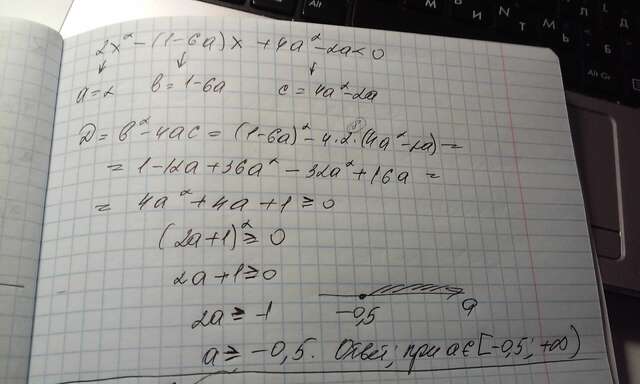 2x² - (1-6a)x + 4a² - 2a < 0
a = 2 b = 1-6a c = 4a² - 2a
D = b² - 4ac = (1-6a)² - 4·2·(4a² - 2a) =
= 1 - 12a + 36a² - 32a² + 16a =
= 4a² + 4a + 1 ≥ 0
(2a+1)² ≥ 0
2a + 1 ≥ 0
2a ≥ -1
-0,5 a
a ≥ -0,5. Ответ; при a ∈ [-0,5; +∞)